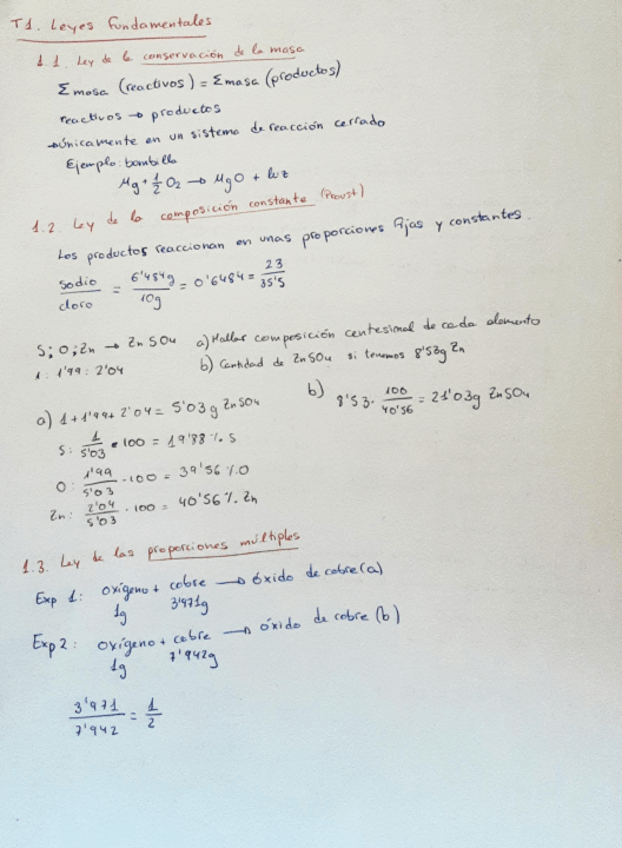 T1. Leyes fundamentales
1.1. Ley de la conservación de la masa
Σ masa (reactivos) = Σ masa (productos)
reactivos → productos
→ únicamente en un sistema de reacción cerrado
Ejemplo: bombilla
Mg + 1/2 O2 → MgO + luz
1.2. Ley de la composición constante (Proust)
Los productos reaccionan en unas proporciones fijas y constantes.
sodio/cloro = 6'484g/10g = 0'6484 = 23/35'5
S; O; Zn → ZnSO4 a) Hallar composición centesimal de cada elemento
1 : 1'99 : 2'04 b) Cantidad de ZnSO4 si tenemos 8'53g Zn
a) 1 + 1'99 + 2'04 = 5'03g ZnSO4
S: 1/5'03 · 100 = 19'88 % S
O: 1'99/5'03 · 100 = 39'56 % O
Zn: 2'04/5'03 · 100 = 40'56 % Zn
b) 8'53 · 100/40'56 = 21'03g ZnSO4
1.3. Ley de las proporciones múltiples
Exp 1: oxígeno + cobre → óxido de cobre (a)
1g 3'971g
Exp 2: oxígeno + cobre → óxido de cobre (b)
1g 7'942g
3'971/7'942 = 1/2